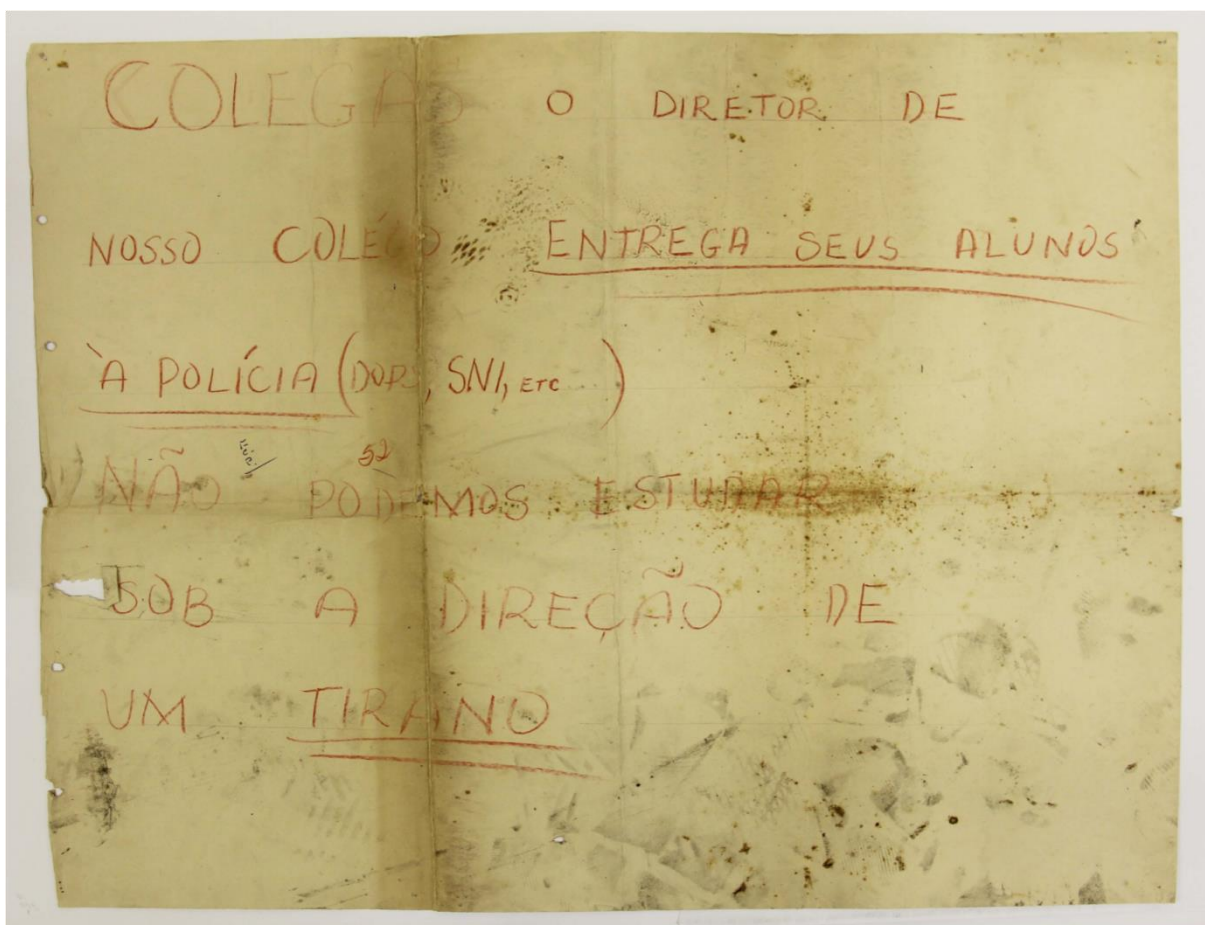 COLEGAS O DIRETOR DE
NOSSO COLÉGIO ENTREGA SEUS ALUNOS
À POLÍCIA (DOPS, SNI, ETC )
52
NÃO PODEMOS ESTUDAR
SOB A DIREÇÃO DE
UM TIRANO